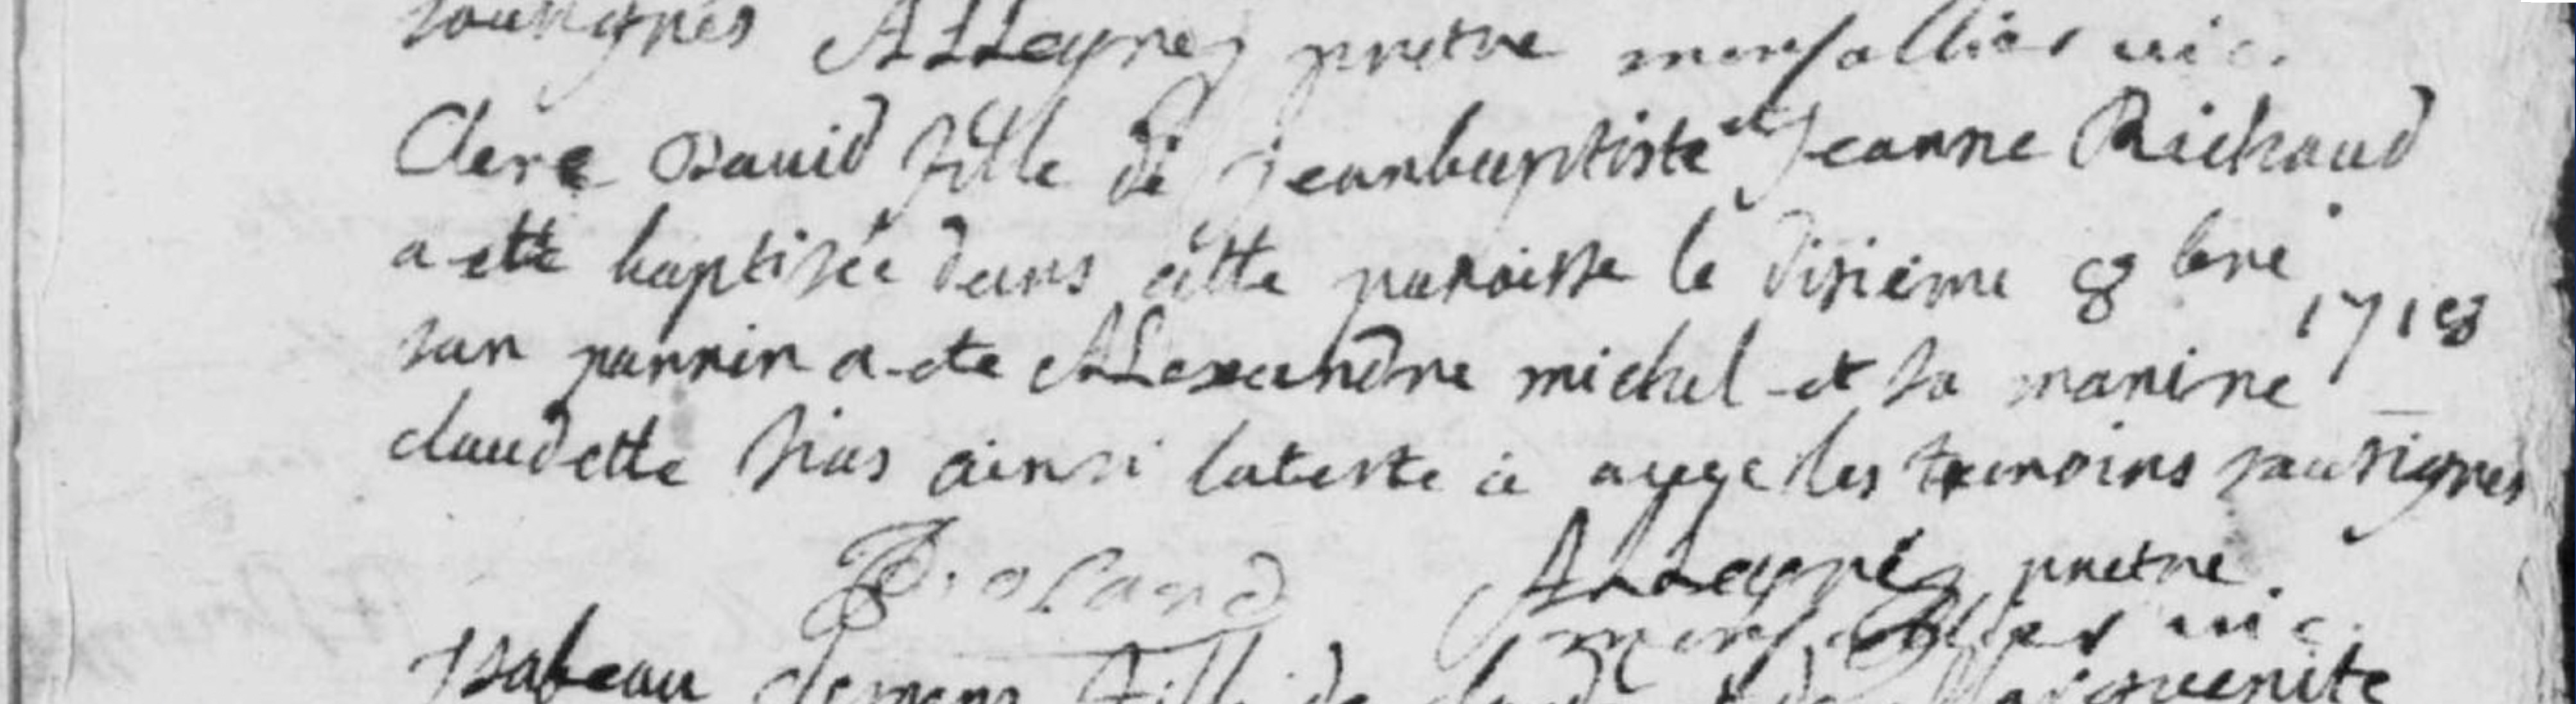 sousignés ALLegre prettre monsallier vic.
Clere David fille de jeanbaptiste et jeanne Richaud
a ette baptisée dans cette paroisse le disiéme 8 bre
1718
son parrin a ete ALexandre michel et sa marine
claudette sias ainsi lateste ie avec les temoins sousignés
Roland ALLegre prettre.
monsallier vic.
ysabeau clemens fille de claude et de Marguerite